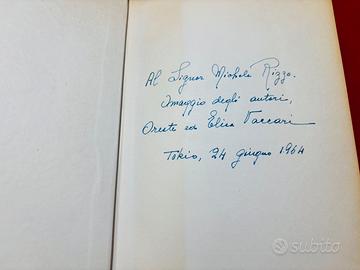 Al Signor Michele Rizzo.
Omaggio degli autori,
Oreste ed Elisa Vaccari
Tokio, 24 giugno 1964
subito